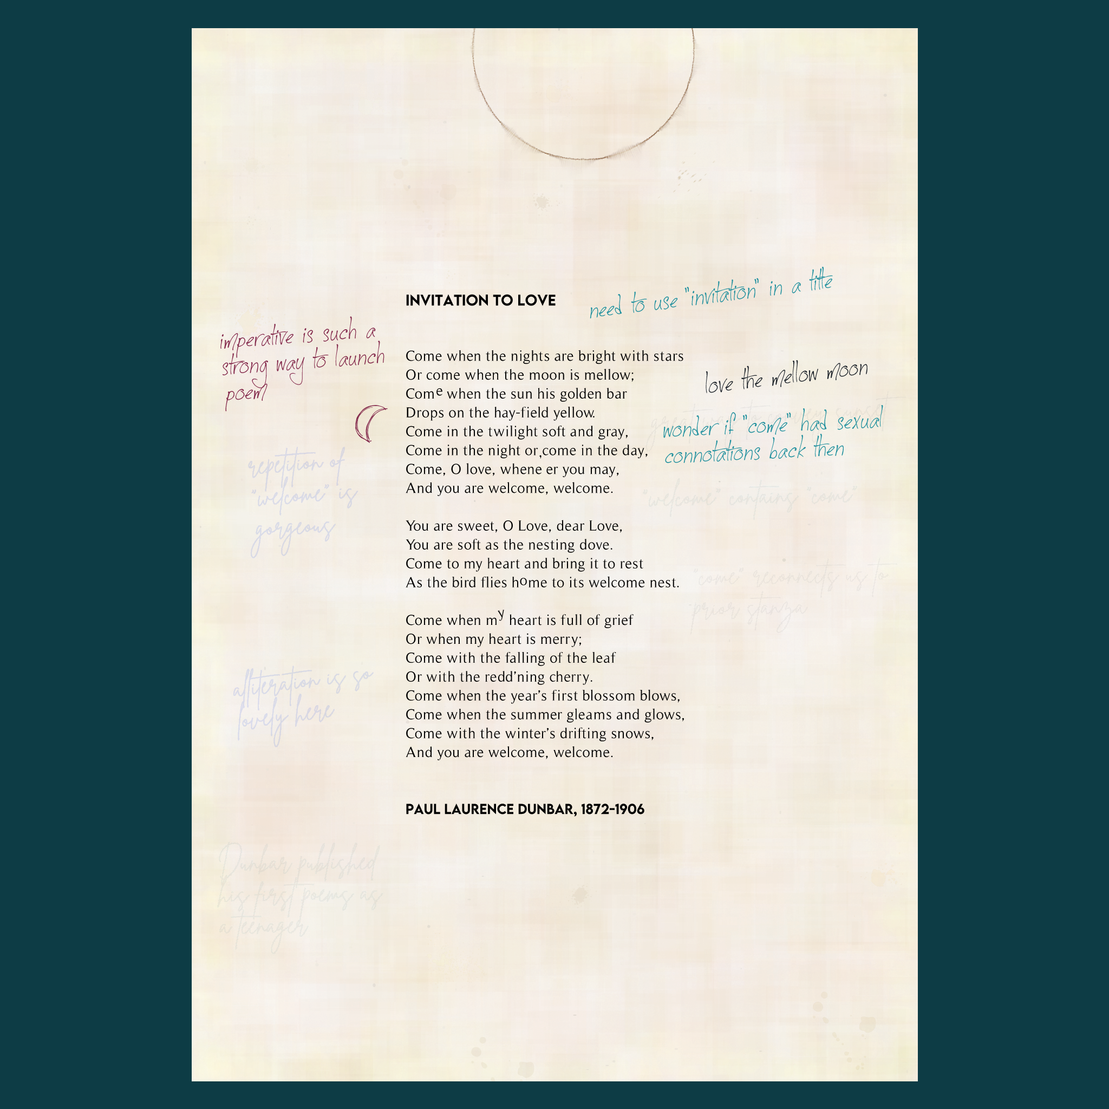 INVITATION TO LOVE
need to use "invitation" in a title
imperative is such a
strong way to launch
poem
Come when the nights are bright with stars
Or come when the moon is mellow;
Come when the sun his golden bar
Drops on the hay-field yellow.
Come in the twilight soft and gray,
Come in the night or,come in the day,
Come, O love, whene er you may,
And you are welcome, welcome.
love the mellow moon
wonder if "come" had sexual
connotations back then
repetition of
"welcome" is
gorgeous
"welcome" contains "come"
You are sweet, O Love, dear Love,
You are soft as the nesting dove.
Come to my heart and bring it to rest
As the bird flies home to its welcome nest.
"come" reconnects us to
prior stanza
Come when my heart is full of grief
Or when my heart is merry;
Come with the falling of the leaf
Or with the redd'ning cherry.
Come when the year's first blossom blows,
Come when the summer gleams and glows,
Come with the winter's drifting snows,
And you are welcome, welcome.
alliteration is so
lovely here
PAUL LAURENCE DUNBAR, 1872-1906
Dunbar published
his first poems as
a teenager